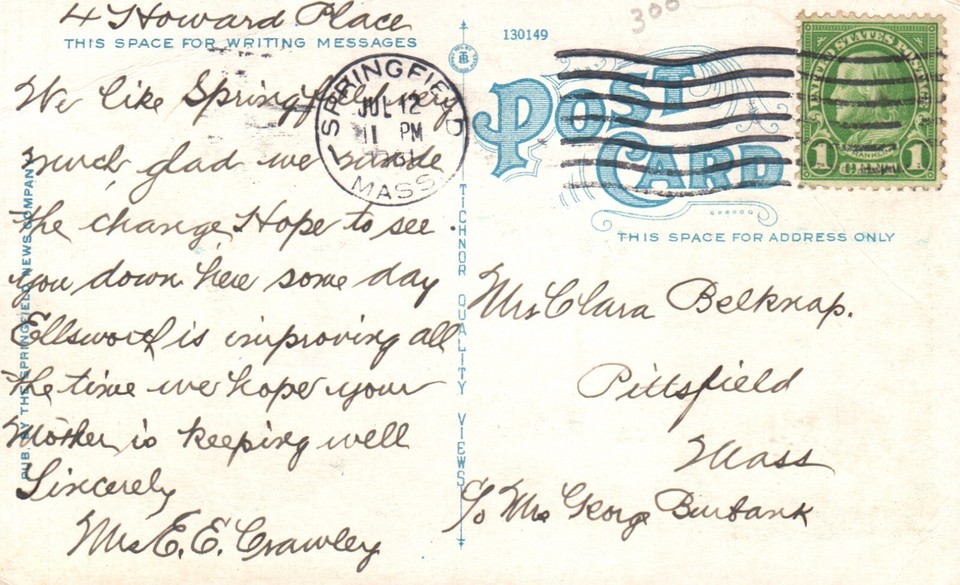 4 Howard Place
THIS SPACE FOR WRITING MESSAGES
We like Springfield very
much, glad we made
the change Hope to see
you down here some day
Ellsworth is improving all
the time we hope your
Mother is keeping well
Sincerely
Mrs E. E. Crawley
PUB. BY THE SPRINGFIELD NEWS COMPANY
SPRINGFIELD
JUL 12
11 PM
MASS
TICHNOR QUALITY VIEWS
130149
300
POST
CARD
UNITED STATES POSTAGE
FRANKLIN
1 1
THIS SPACE FOR ADDRESS ONLY
Mrs Clara Belknap.
Pittsfield
Mass
c/o Mrs George Burbank